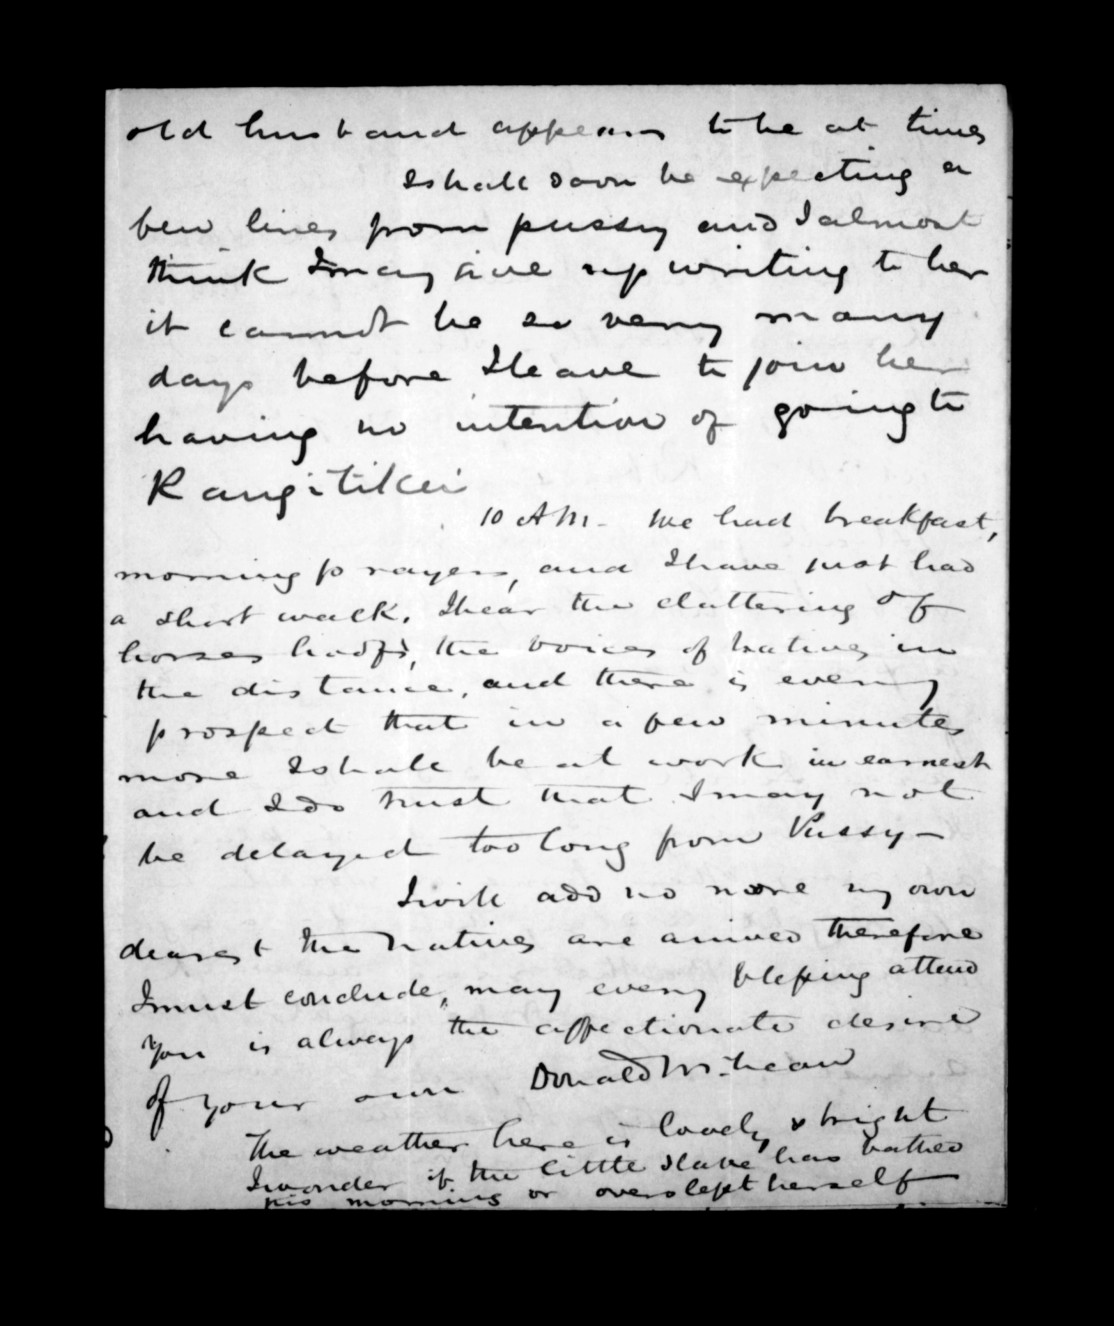 old husband appears to be at times
I shall soon be expecting a
few lines from pussy and I almost
think I may give up writing to her
it cannot be so very many
days before I leave to join her
having no intention of going to
Rangitikei
10 AM - We had breakfast,
morning prayers, and I have just had
a short walk. I hear the clattering of
horses hoofs, the voices of natives in
the distance, and there is every
prospect that in a few minutes
more I shall be at work in earnest
and I do trust that I may not
be delayed too long from Pussy -
I will add no more my own
dearest the natives are arrived therefore
I must conclude, may every blessing attend
you is always the affectionate desire
of your own Donald McLean
The weather here is lovely & bright
I wonder if the little slave has bathed
this morning or overslept herself